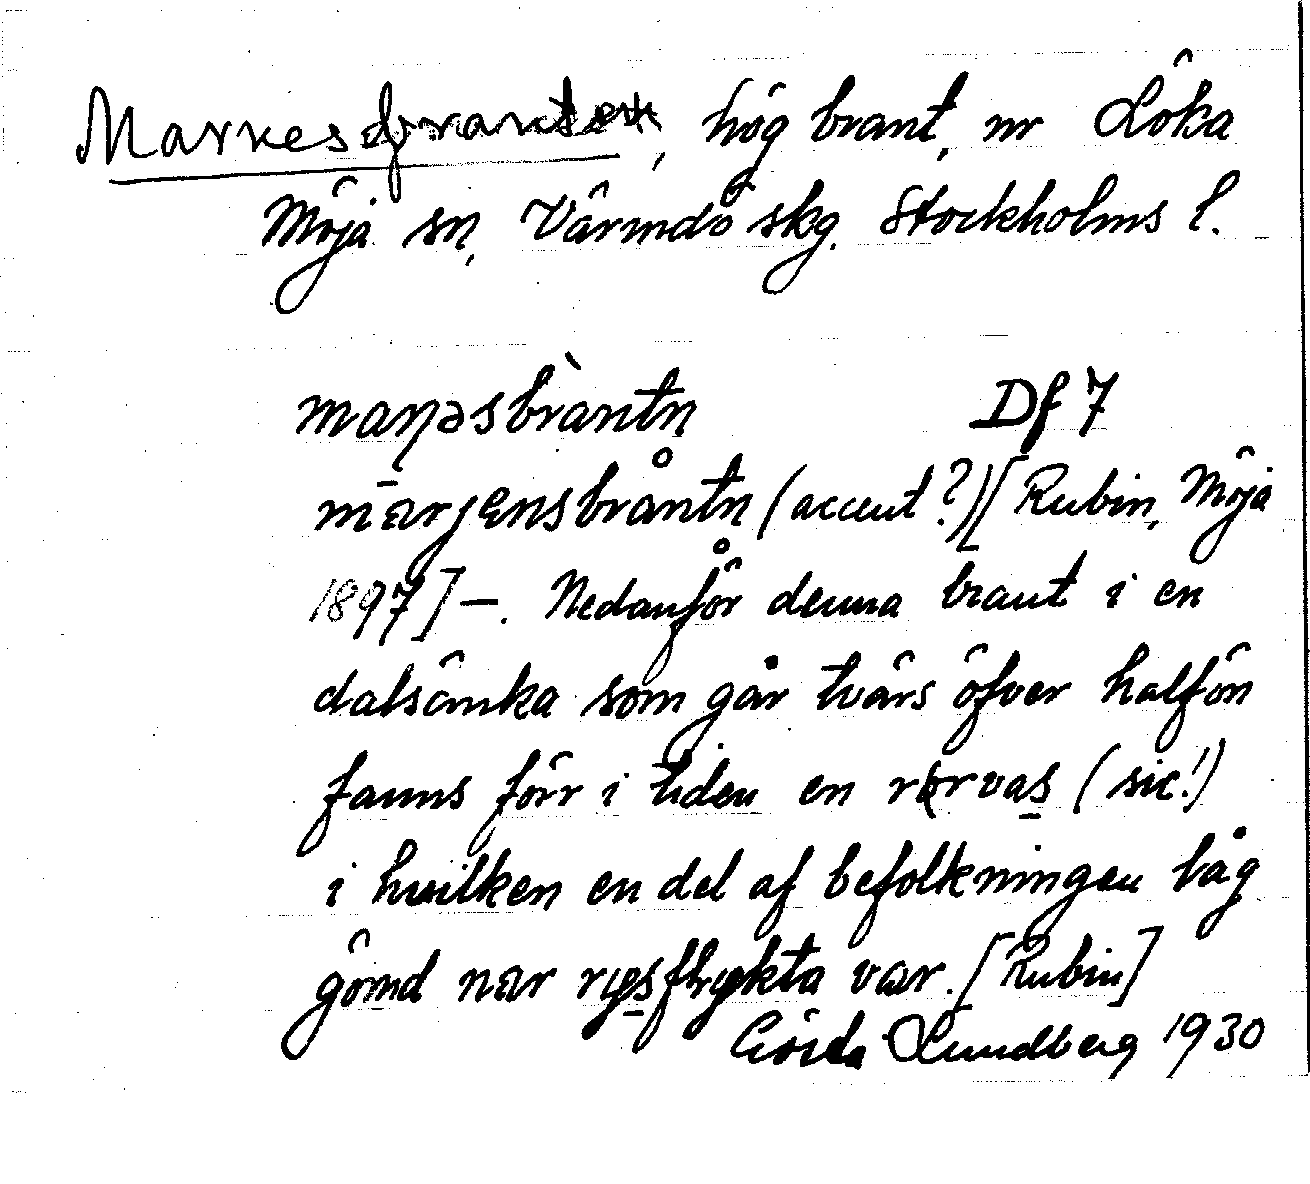 Marnesbranten, hög brant, nr Löka
Möja sn, Värmdö skg. Stockholms l.
maṇəsbràntn Df 7
(accent?) [Rubin, Möja
1897] –. Nedanför denna brant i en
dalsänka som går tvärs öfver halfön
fanns förr i tiden en rörvas (sic!)
i hvilken en del af befolkningen låg
gömd när rysflykta var. [Rubin]
Gösta Lundberg 1930